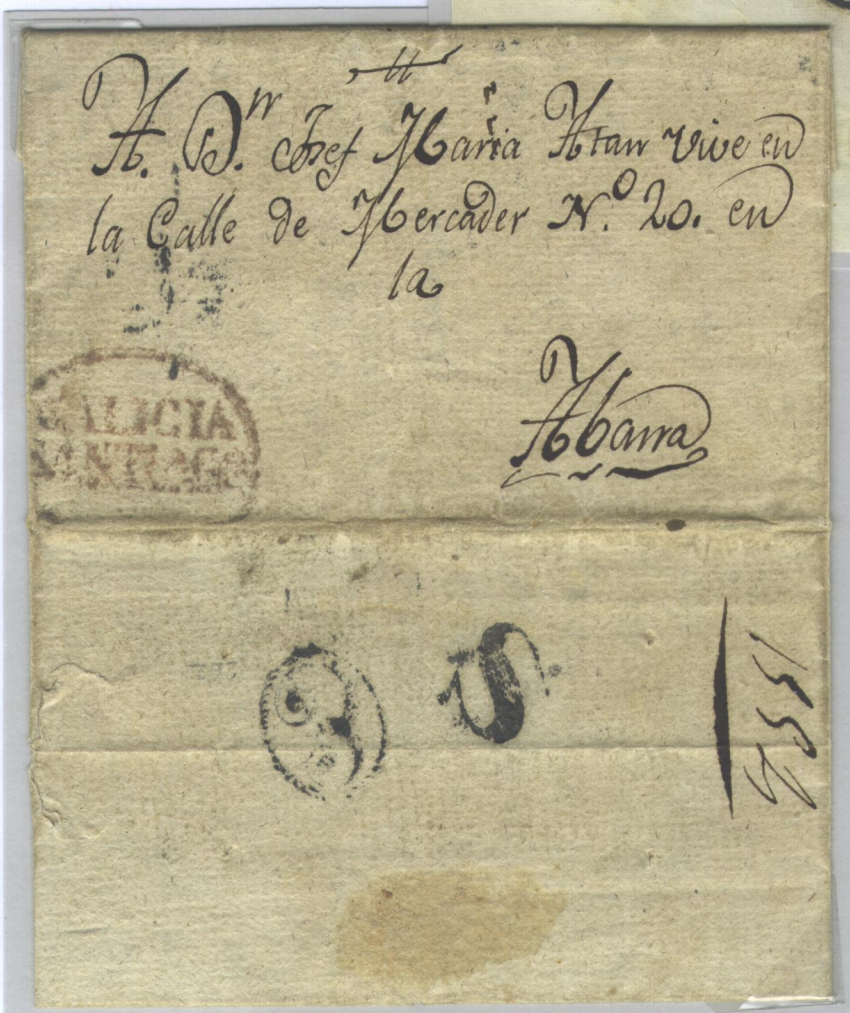 A. D.n Josef Maria Atan vive en
la Calle de Mercader N.º 20. en
la
Abana
GALICIA
SANTIAGO
9
S